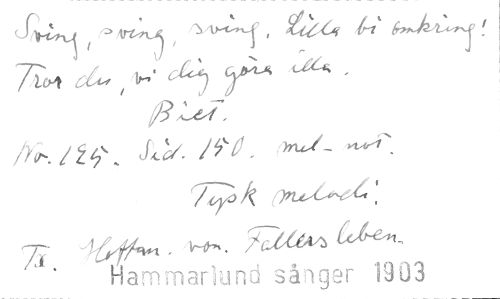 Sving, sving, sving. Lilla bi omkring!
Tror du, vi dig göra illa.
Biet.
No. 125. Sid. 150. mel-not.
Tysk melodi.
Tx. Hoffm. von. Fallersleben.
Hammarlund sånger 1903